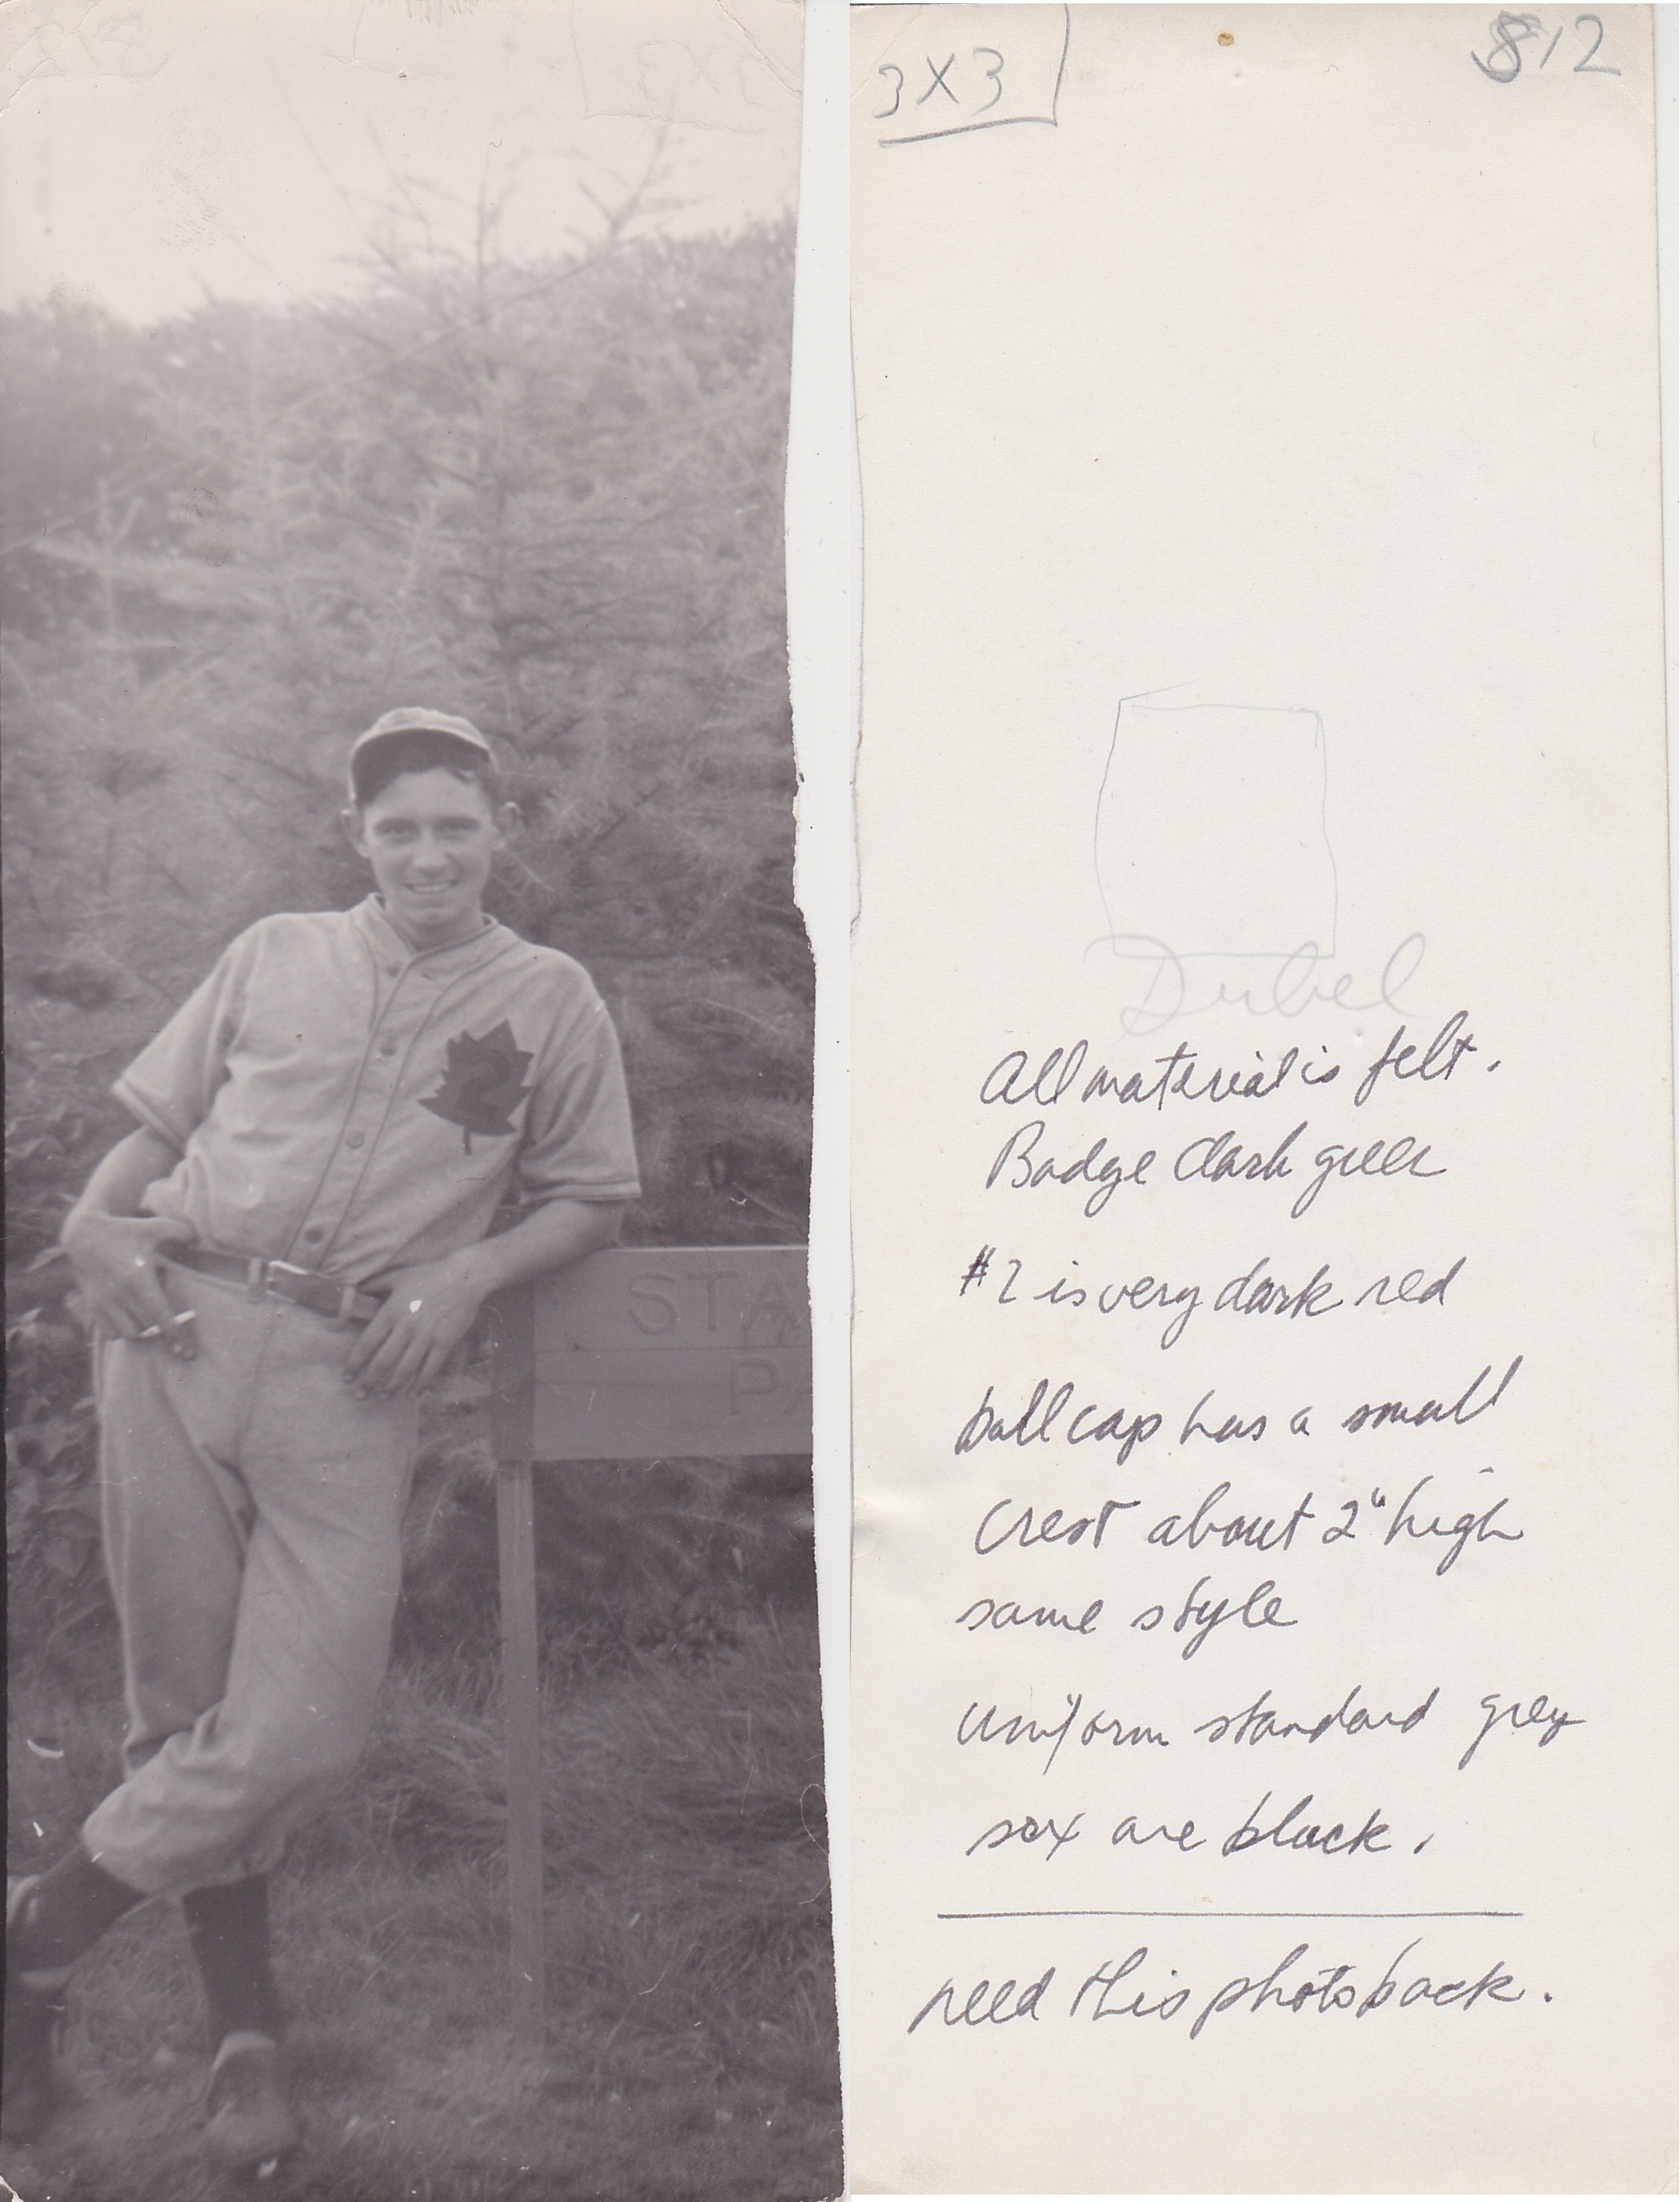 STA
PA
2
3X3
812
Dubel
All material is felt.
Badge dark green
#2 is very dark red
ball cap has a small
crest about 2" high
same style
uniform standard grey
sox are black.
need this photo back.